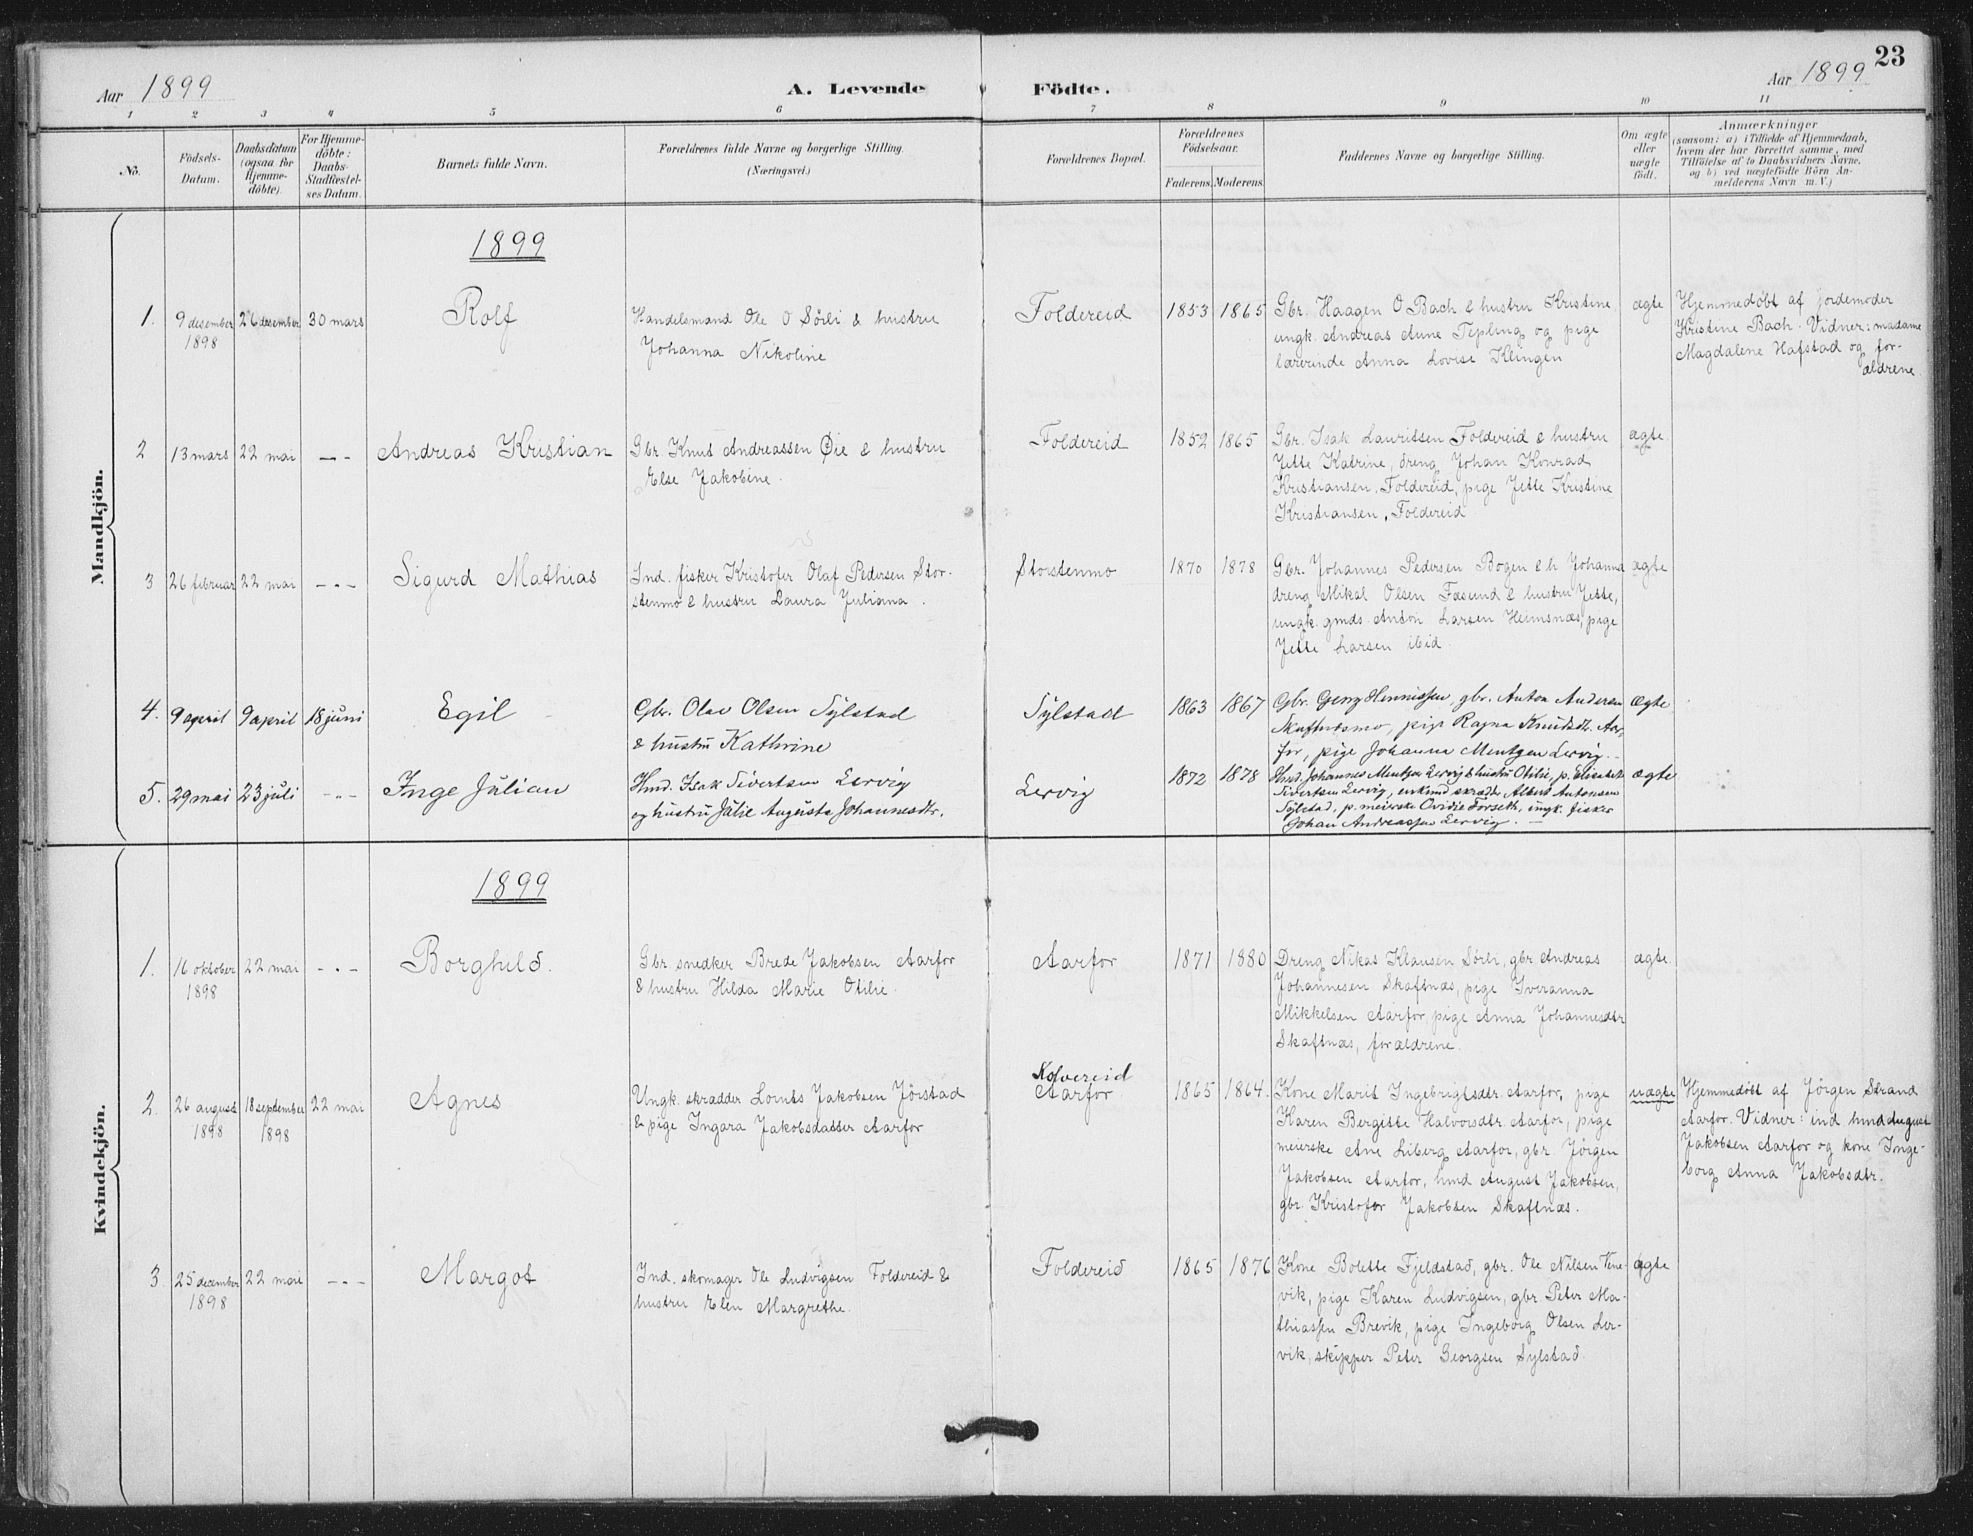 23
Aar 1899
A. Levende Födte.
Aar 1899
1 2 3 4 5 6 7 8 9 10 11
No.
Födsels-
Datum.
Daabsdatum
(ogsaa for
Hjemme-
döbte).
For Hjemme-
döbte:
Daabs-
Stadfæstel-
ses Datum.
Barnets fulde Navn.
Forældrenes fulde Navne og borgerlige Stilling.
(Næringsvei.)
Forældrenes Bopæl.
Forældrenes
Födselsaar.
Faderens. Moderens.
Faddernes Navne og borgerlige Stilling.
Om ægte
eller
uægte
födt.
Anmærkninger
(saasom: a) i Tilfælde af Hjemmedaab,
hvem der har forrettet samme, med
Tilföielse af to Daabsvidners Navne,
og b) ved uægtefödte Börn An-
melderens Navn m. V.)
Mandkjön.
1899
1.
9 desember
1898
26 desember
30 mars
Rolf
Handelsmand Ole O Sörli & hustru
Johanna Nikoline
Foldereid
1853 1865
Gbr. Haagen O Bach & hustru Kristine
ungk. Andreas Aune Tepling og pige
lærerinde Anna Lovise Klingen
ægte
Hjemmedöbt af jordemoder
Kristine Bach. Vidner: madame
Magdalene Hafstad og for-
ældrene.
2
13 mars
22 mai
— -
Andreas Kristian
Gbr. Knut Andreassen Øie & hustru
Else Jakobine.
Foldereid
1852 1865
Gbr. Isak Lauritsen Foldereid & hustru
Jette Katrine, dreng Johan Konrad
Kristiansen, Foldereid, pige Jette Kristine
Kristiansen, Foldereid
ægte
3
26 februar
22 mai
- - -
Sigurd Mathias
Ind. fisker Kristofer Olaf Pedersen Stor-
stenmo & hustru Laura Juliana.
Storstenmo
1870 1878
Gbr. Johannes Pedersen Bogen & h Johanna
dreng Mikal Olsen Fæsund & hustru Jette,
ungk. gmds. Anton Larsen Heimsnæs, pige
Jette Larsen ibid.
ægte
4.
9 april
9 april
18 juni
Egil
Gbr. Olav Olsen Sylstad
& hustru Kathrine
Sylstad
1863 1867
Gbr. Georg Hennissen, gbr. Anton Andersen
Skaftnesmo, pige Ragna Knudsdtr. Aar-
for, pige Johanna Mentzen Lervig.
Ægte
5.
29 mai
23 juli
- - -
Inge Julian
Hmd. Isak Sivertsen Lervig
og hustru Julie Augusta Johannesdtr.
Lervig
1872 1878
Hmd. Johannes Mentzen Lervig & hustru Otilie, p. Elisabeth
Sivertsen Lervig, enkemd skrædder Albert Antonsen
Sylstad, p. meierske Ovidie Forseth, ungk. fisker
Johan Andreassen Lervig. —
ægte
Kvindekjön.
1899
1.
16 oktober
1898
22 mai
- - -
Borghild.
Gbr snedker Brede Jakobsen Aarfor
& hustru Hilda Marie Otilie
Aarfor
1871 1880
Dreng Nikas Klausen Sörli, gbr Andreas
Johannesen Skaftnæs, pige Iveranna
Mikkelsen Aarfor, pige Anna Johannesdtr
Skaftnæs, forældrene.
ægte
2.
26 august
1898
18 september
1898
22 mai
Agnes
Ungk. skrædder Lornts Jakobsen Jörstad
& pige Ingara Jakobsdatter Aarfor
Kolvereid
Aarfor
1865 1864.
Kone Marit Ingebrigtsdtr. Aarfor, pige
Karen Bergitte Halvorsdtr. Aarfor, pige
meierske Ane Liberg Aarfor, gbr. Jörgen
Jakobsen Aarfor, hmd August Jakobsen,
gbr. Kristofer Jakobsen Skaftnæs.
uægte
Hjemmedöbt af Jörgen Strand
Aarfor. Vidner: ind hmd August
Jakobsen Aarfor og kone Inge-
borg Anna Jakobsdtr.
3.
25 december
1898
22 mai
- - -
Margot
Ind. skomager Ole Ludvigsen Foldereid &
hustru Elen Margrethe.
Foldereid
1865 1876
Kone Bolette Fjeldstad, gbr. Ole Nilsen Vene-
vik, pige Karen Ludvigsen, gbr Peter Ma-
thiassen Brevik, pige Ingeborg Olsen Ler-
vik, skipper Peter Georgsen Sylstad
ægte